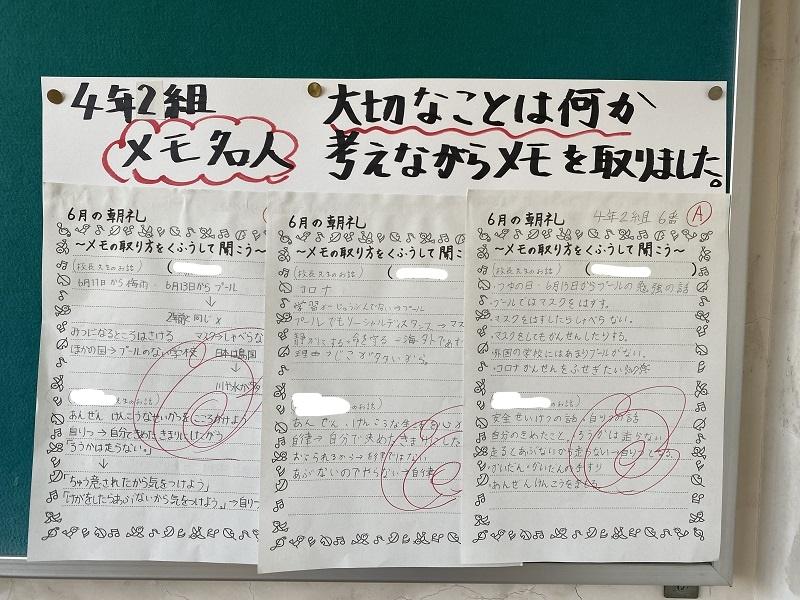 4年2組
メモ名人
大切なことは何か
考えながらメモを取りました。
6月の朝礼
～メモの取り方をくふうして聞こう～
(校長先生のお話)
6月11日から梅雨 6月13日からプール
↓
みつになるところはさける マスク→しゃべらな
ほかの国→プールのない学校 日本は島国
↓
先生のお話)
あんぜん けんこうなせいかつをこころがけよう
自りつ→自分できめたきまりにしたがう
「ろうかは走らない。」
↓
「ちゅう意されたから気をつけよう」
「けがをしたらあぶないから気をつけよう。」→自りつ
6月の朝礼
～メモの取り方をくふうして聞こ
(校長先生のお話)
コロナ
プールでもソーシャルディスタンス→マス
先生のお話)
自律→自分で決めたきまりにした
おこられるから→自律ではない
あぶないのでやらない→自律
6月の朝礼 4年2組 6番 A
～メモの取り方をくふうして聞こう～
(校長先生のお話)
・つゆの日・6月15日からプールの勉強の話
・プールではマスクをはずす。
・マスクをはずしたらしゃべらない。
・マスクをしてもかんせんしたりする。
・外国の学校にはあまりプールがない。
・コロナかんせんをふせぎたい
のお話)
・安全せいけつの話・自りつの話
・自分のきめたこと、ろうかは走らない
・走るとあぶないから走らない→自りつ
・あんぜんけんこうをまもる